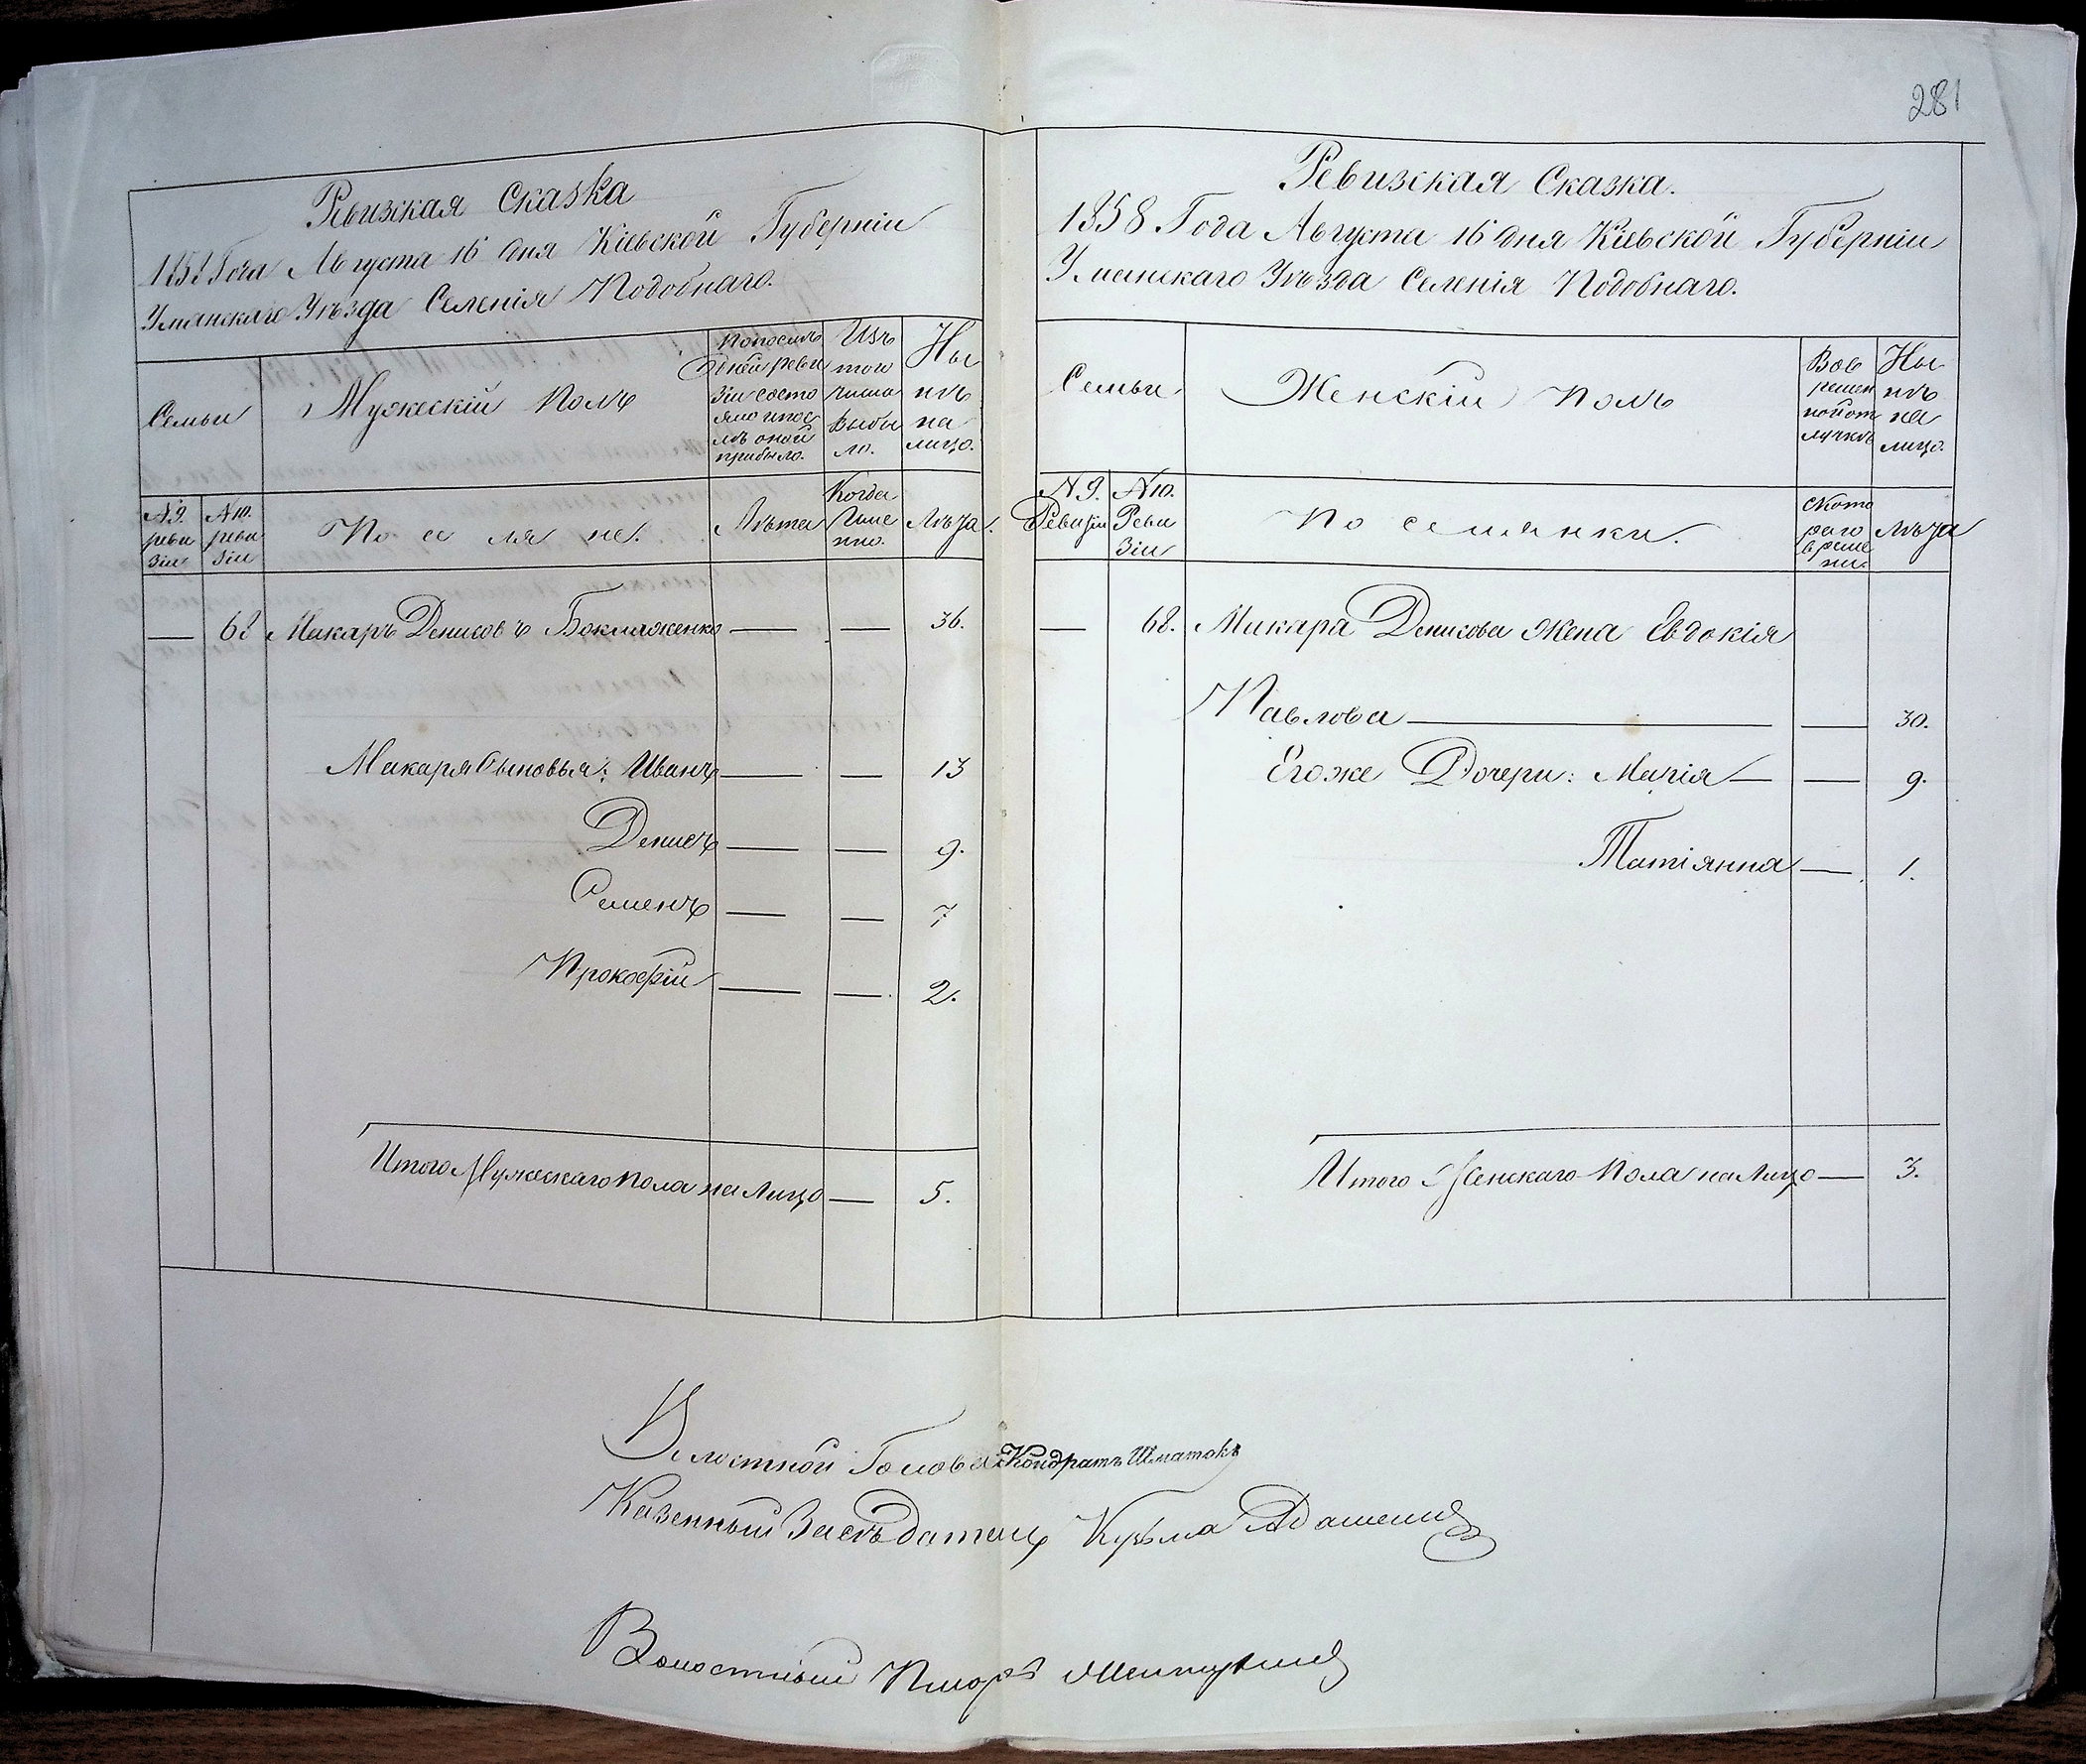 281
Ревизская Сказка
1858 Года Августа 16 дня Кіевской Губерніи
Уманскаго Уѣзда Селенія Подобнаго.
Семьи
Мужескій Полъ
По послѣ
дней реви
зіи состо
яло и пос
лѣ оной
прибыло.
Изъ
того
числа
выбы
ло.
Ны
нѣ
на
лицо.
№ 9.
реви
зіи
№ 10.
реви
зіи
По се ля не.
Лѣта
Когда
Име
нно.
Лѣта.
— 68 Макаръ Денисовъ — — 36.
Макара Сыновья: Иванъ — — 13
Денисъ — — 9.
Семенъ — — 7
Прокофій — — 2.
Итого Мужескаго пола на Лицо — 5.
Ревизская Сказка.
1858 Года Августа 16 дня Кіевской Губерніи
Уманскаго Уѣзда Селенія Подобнаго.
Семьи
Женскій Полъ
Вов
ремен
ной от
лучкѣ
Ны
нѣ
на
лицо.
№ 9.
Ревизіи
№ 10.
Реви
зіи
По селянки.
Ското
раго
време
ни.
Лѣта
— 68. Макара Денисова Жена Евдокія
Павлова — — 30.
Егоже Дочери: Марія — — 9.
Татіянна — 1.
Итого Женскаго Пола на Лицо — 3.
Волостной Голова Кондратъ Шматокъ
Казенный Засѣдатель Кузьма
Волостный Писарь